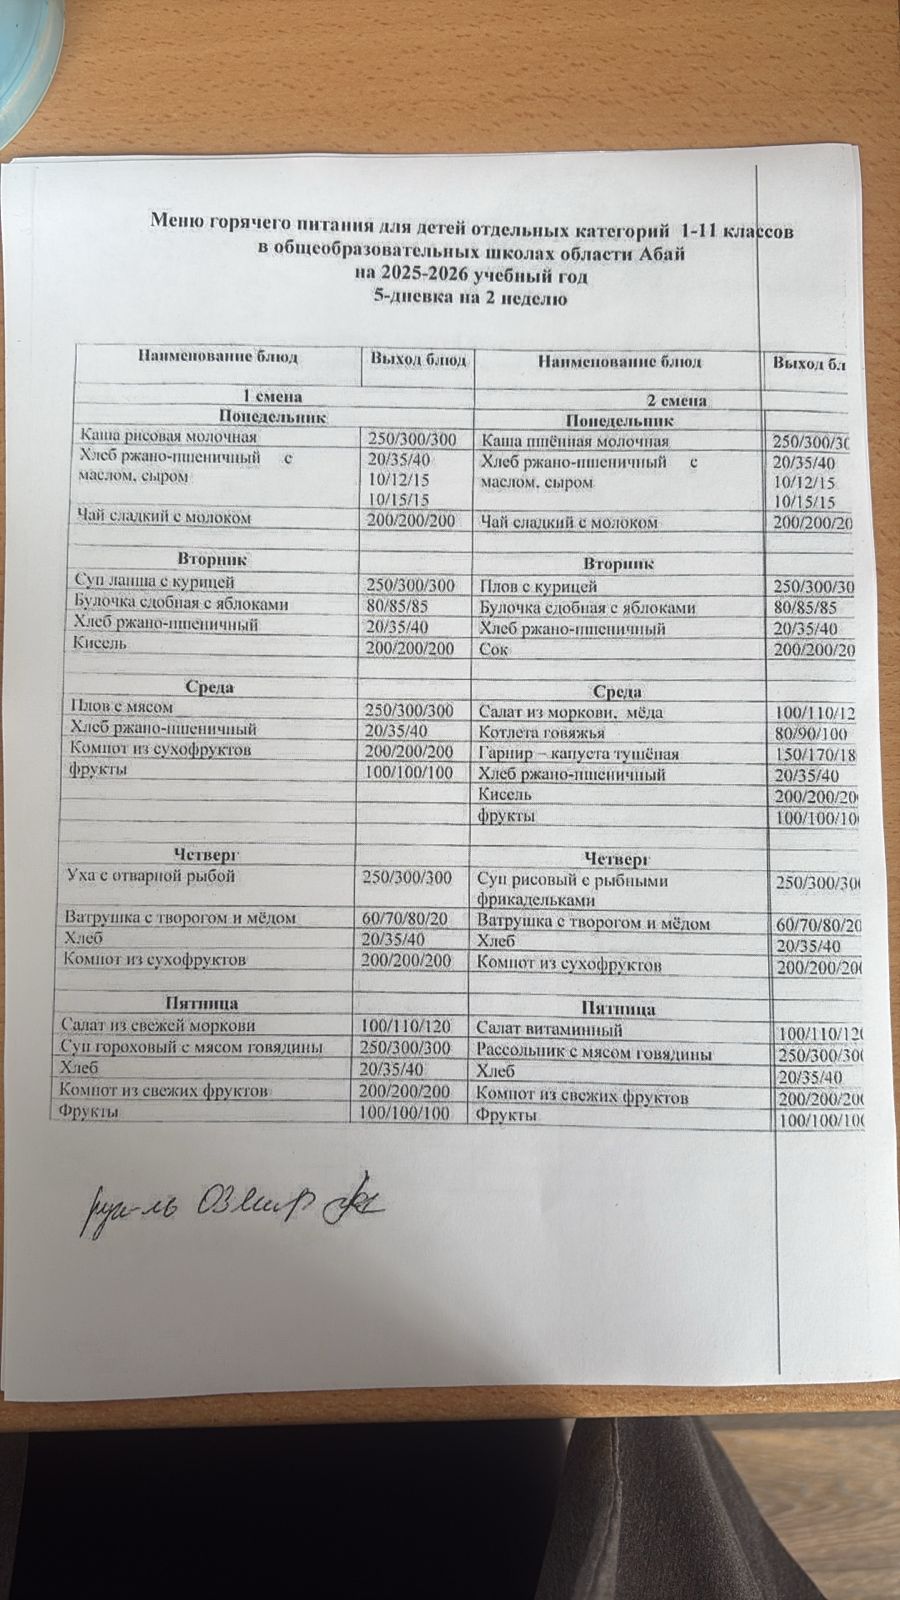 Меню горячего питания для детей отдельных категорий 1-11 классов
в общеобразовательных школах области Абай
на 2025-2026 учебный год
5-дневка на 2 неделю
Наименование блюд Выход блюд Наименование блюд Выход бл
1 смена 2 смена
Понедельник Понедельник
Каша рисовая молочная 250/300/300 Каша пшённая молочная 250/300/30
Хлеб ржано-пшеничный с 20/35/40 Хлеб ржано-пшеничный с 20/35/40
маслом, сыром 10/12/15 маслом, сыром 10/12/15
10/15/15 10/15/15
Чай сладкий с молоком 200/200/200 Чай сладкий с молоком 200/200/20
Вторник Вторник
Суп лапша с курицей 250/300/300 Плов с курицей 250/300/30
Булочка сдобная с яблоками 80/85/85 Булочка сдобная с яблоками 80/85/85
Хлеб ржано-пшеничный 20/35/40 Хлеб ржано-пшеничный 20/35/40
Кисель 200/200/200 Сок 200/200/20
Среда Среда
Плов с мясом 250/300/300 Салат из моркови, мёда 100/110/12
Хлеб ржано-пшеничный 20/35/40 Котлета говяжья 80/90/100
Компот из сухофруктов 200/200/200 Гарнир – капуста тушёная 150/170/18
фрукты 100/100/100 Хлеб ржано-пшеничный 20/35/40
Кисель 200/200/20
фрукты 100/100/10
Четверг Четверг
Уха с отварной рыбой 250/300/300 Суп рисовый с рыбными 250/300/30
фрикадельками
Ватрушка с творогом и мёдом 60/70/80/20 Ватрушка с творогом и мёдом 60/70/80/20
Хлеб 20/35/40 Хлеб 20/35/40
Компот из сухофруктов 200/200/200 Компот из сухофруктов 200/200/20
Пятница Пятница
Салат из свежей моркови 100/110/120 Салат витаминный 100/110/12
Суп гороховый с мясом говядины 250/300/300 Рассольник с мясом говядины 250/300/30
Хлеб 20/35/40 Хлеб 20/35/40
Компот из свежих фруктов 200/200/200 Компот из свежих фруктов 200/200/20
Фрукты 100/100/100 Фрукты 100/100/10